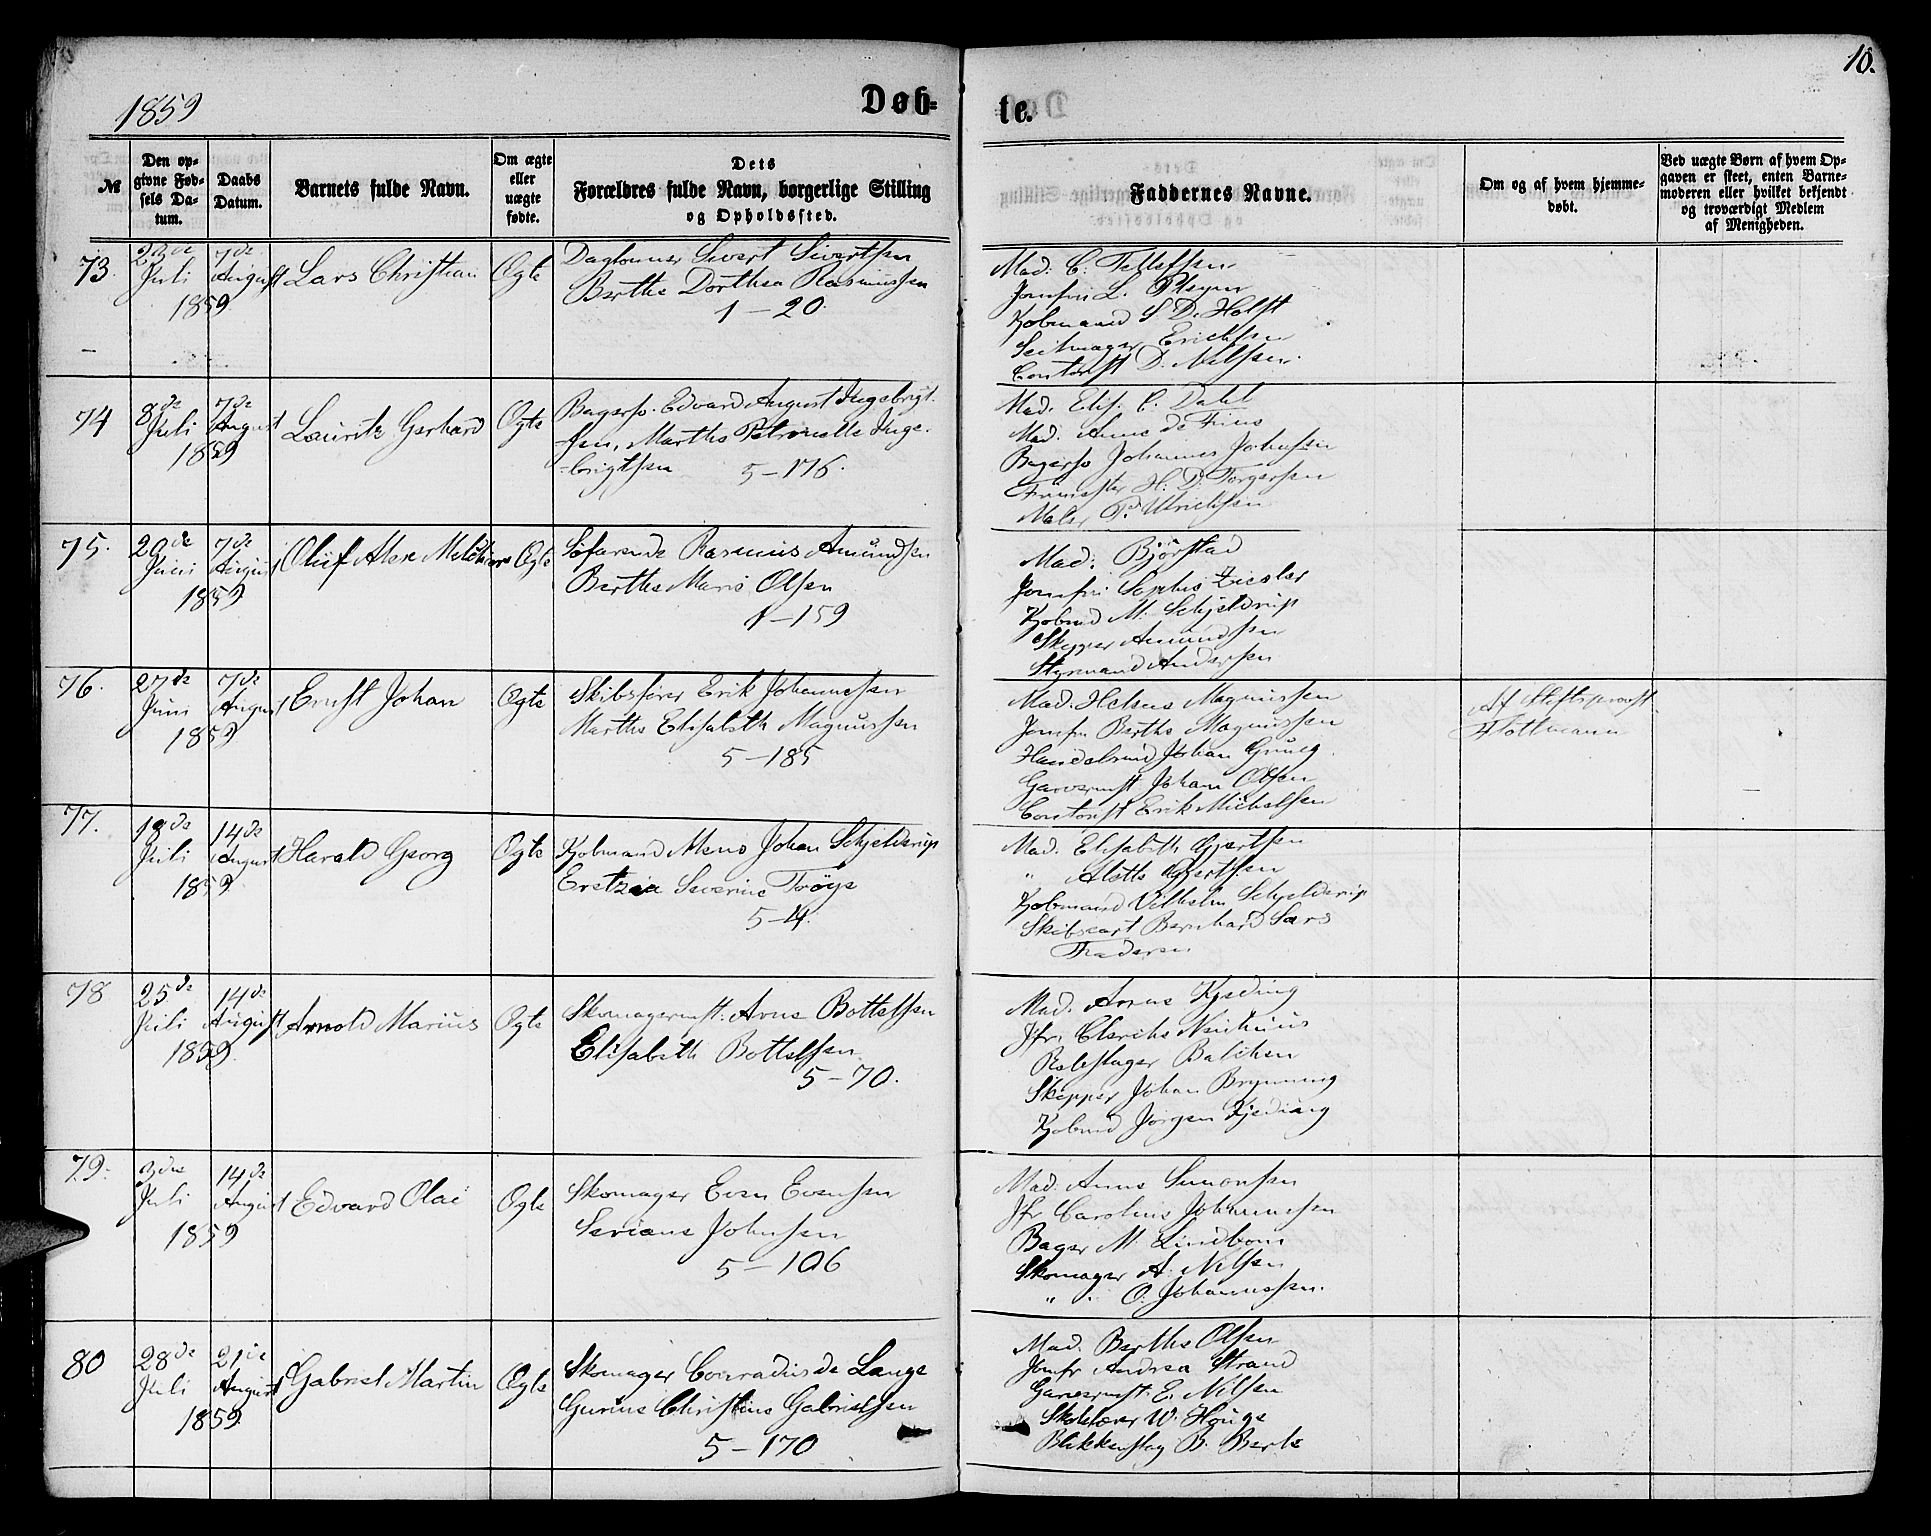 1859
Døb-
te.
10.
№
Den op-
givne Fød-
sels Da-
tum.
Daabs
Datum.
Barnets fulde Navn.
Om ægte
eller
uægte
fødte.
Dets
Forældres fulde Navn, borgerlige Stilling
og Opholdssted.
Faddernes Navne.
Om og af hvem hjemme-
døbt.
Ved uægte Børn af hvem Op-
gaven er skeet, enten Barne-
moderen eller hvilket bekjendt
og troværdigt Medlem
af Menigheden.
73.
23de
Juli
1859
7de
August
Lars Christian
Ægte
Daglonner Sivert Sivertsen
Berthe Dorthea Rasmussen
1 - 20
Mad: C. Tellefsen
Jomfru L. Pleym
Kjobmand S D. Holst
Seilmager Ericksen
Contorist D. Nilsen
74
8de
Juli
1859
7de
August
Lauritz Gerhard
Ægte
Bagersv. Edvard August Ingebrigt
-sen, Marthe Petronelle Inge-
-brigtsen
5 - 176.
Mad. Elis. C. Dahl
Mad. Anne de Fine
Bagersv Johannes Johnsen
H. D. Torgersen
Maler P. Ulrichsen
75.
20de
Juni
1859
7de
August
Oluf Alex Melchior
Ægte
Søfarende Rasmus Amundsen
Berthe Marie Olsen
1 - 159
Mad: Bjørstad
Jomfru Sophie Ziesler
Kjobmd M. Schjelderup
Skipper Amundsen
Styrmand Andersen
76.
27de
Juni
1859
7de
August
Ernst Johan
Ægte
Skibsfører Erik Johannessen
Marthe Elisabeth Magnussen
5 - 185
Mad. Helene Magnussen
Jomfru Berthe Magnussen
Handelsmd Johan Grueg
Garvermst Johan Olsen
Contorist Erik Michelsen
Af Stiftsprovst
Flottmann
77.
18de
Juli
1859
14de
August
Harald Georg
Ægte
Kjobmand Mens Johan Schjelderup
Eretzia Severine Troye
5 - 4.
Mad. Elisabeth Gjertsen
" Alette Gjertsen
Kjobmand Vilhelm Schjelderup
Bernhard Sars
Faderen
78
25de
Juli
1859
14de
August
Arnold Marius
Ægte
Skomagermst: Arne Bottelsen
Elisabeth Bottelsen
5 - 70.
Mad. Anne Kjeding
Jfr. Clericke Neuhuus
Rebslager Balchen
Skipper Johan Brynning
Kjobmd Jørgen Kjeding
79.
3die
Juli
1859
14de
August
Edvard Olai
Ægte
Skomager Even Evensen
Seriane Johnsen
5 - 106
Mad. Anne Simonsen
Jfr Caroline Johannessen
Bager M. Lindbom
Skomager A. Nilsen
" " O. Johannessen.
80
28de
Juli
1859
21de
August
Gabriel Martin
Ægte
Skomager Conradus de Lange
Gurine Christine Gabrielsen
5 - 170
Mad. Berthe Olsen
Jomfr Andrea Strand
Garvermst: E. Nilsen
Skolelærer W. Hauge
Blikkenslag B. Berle